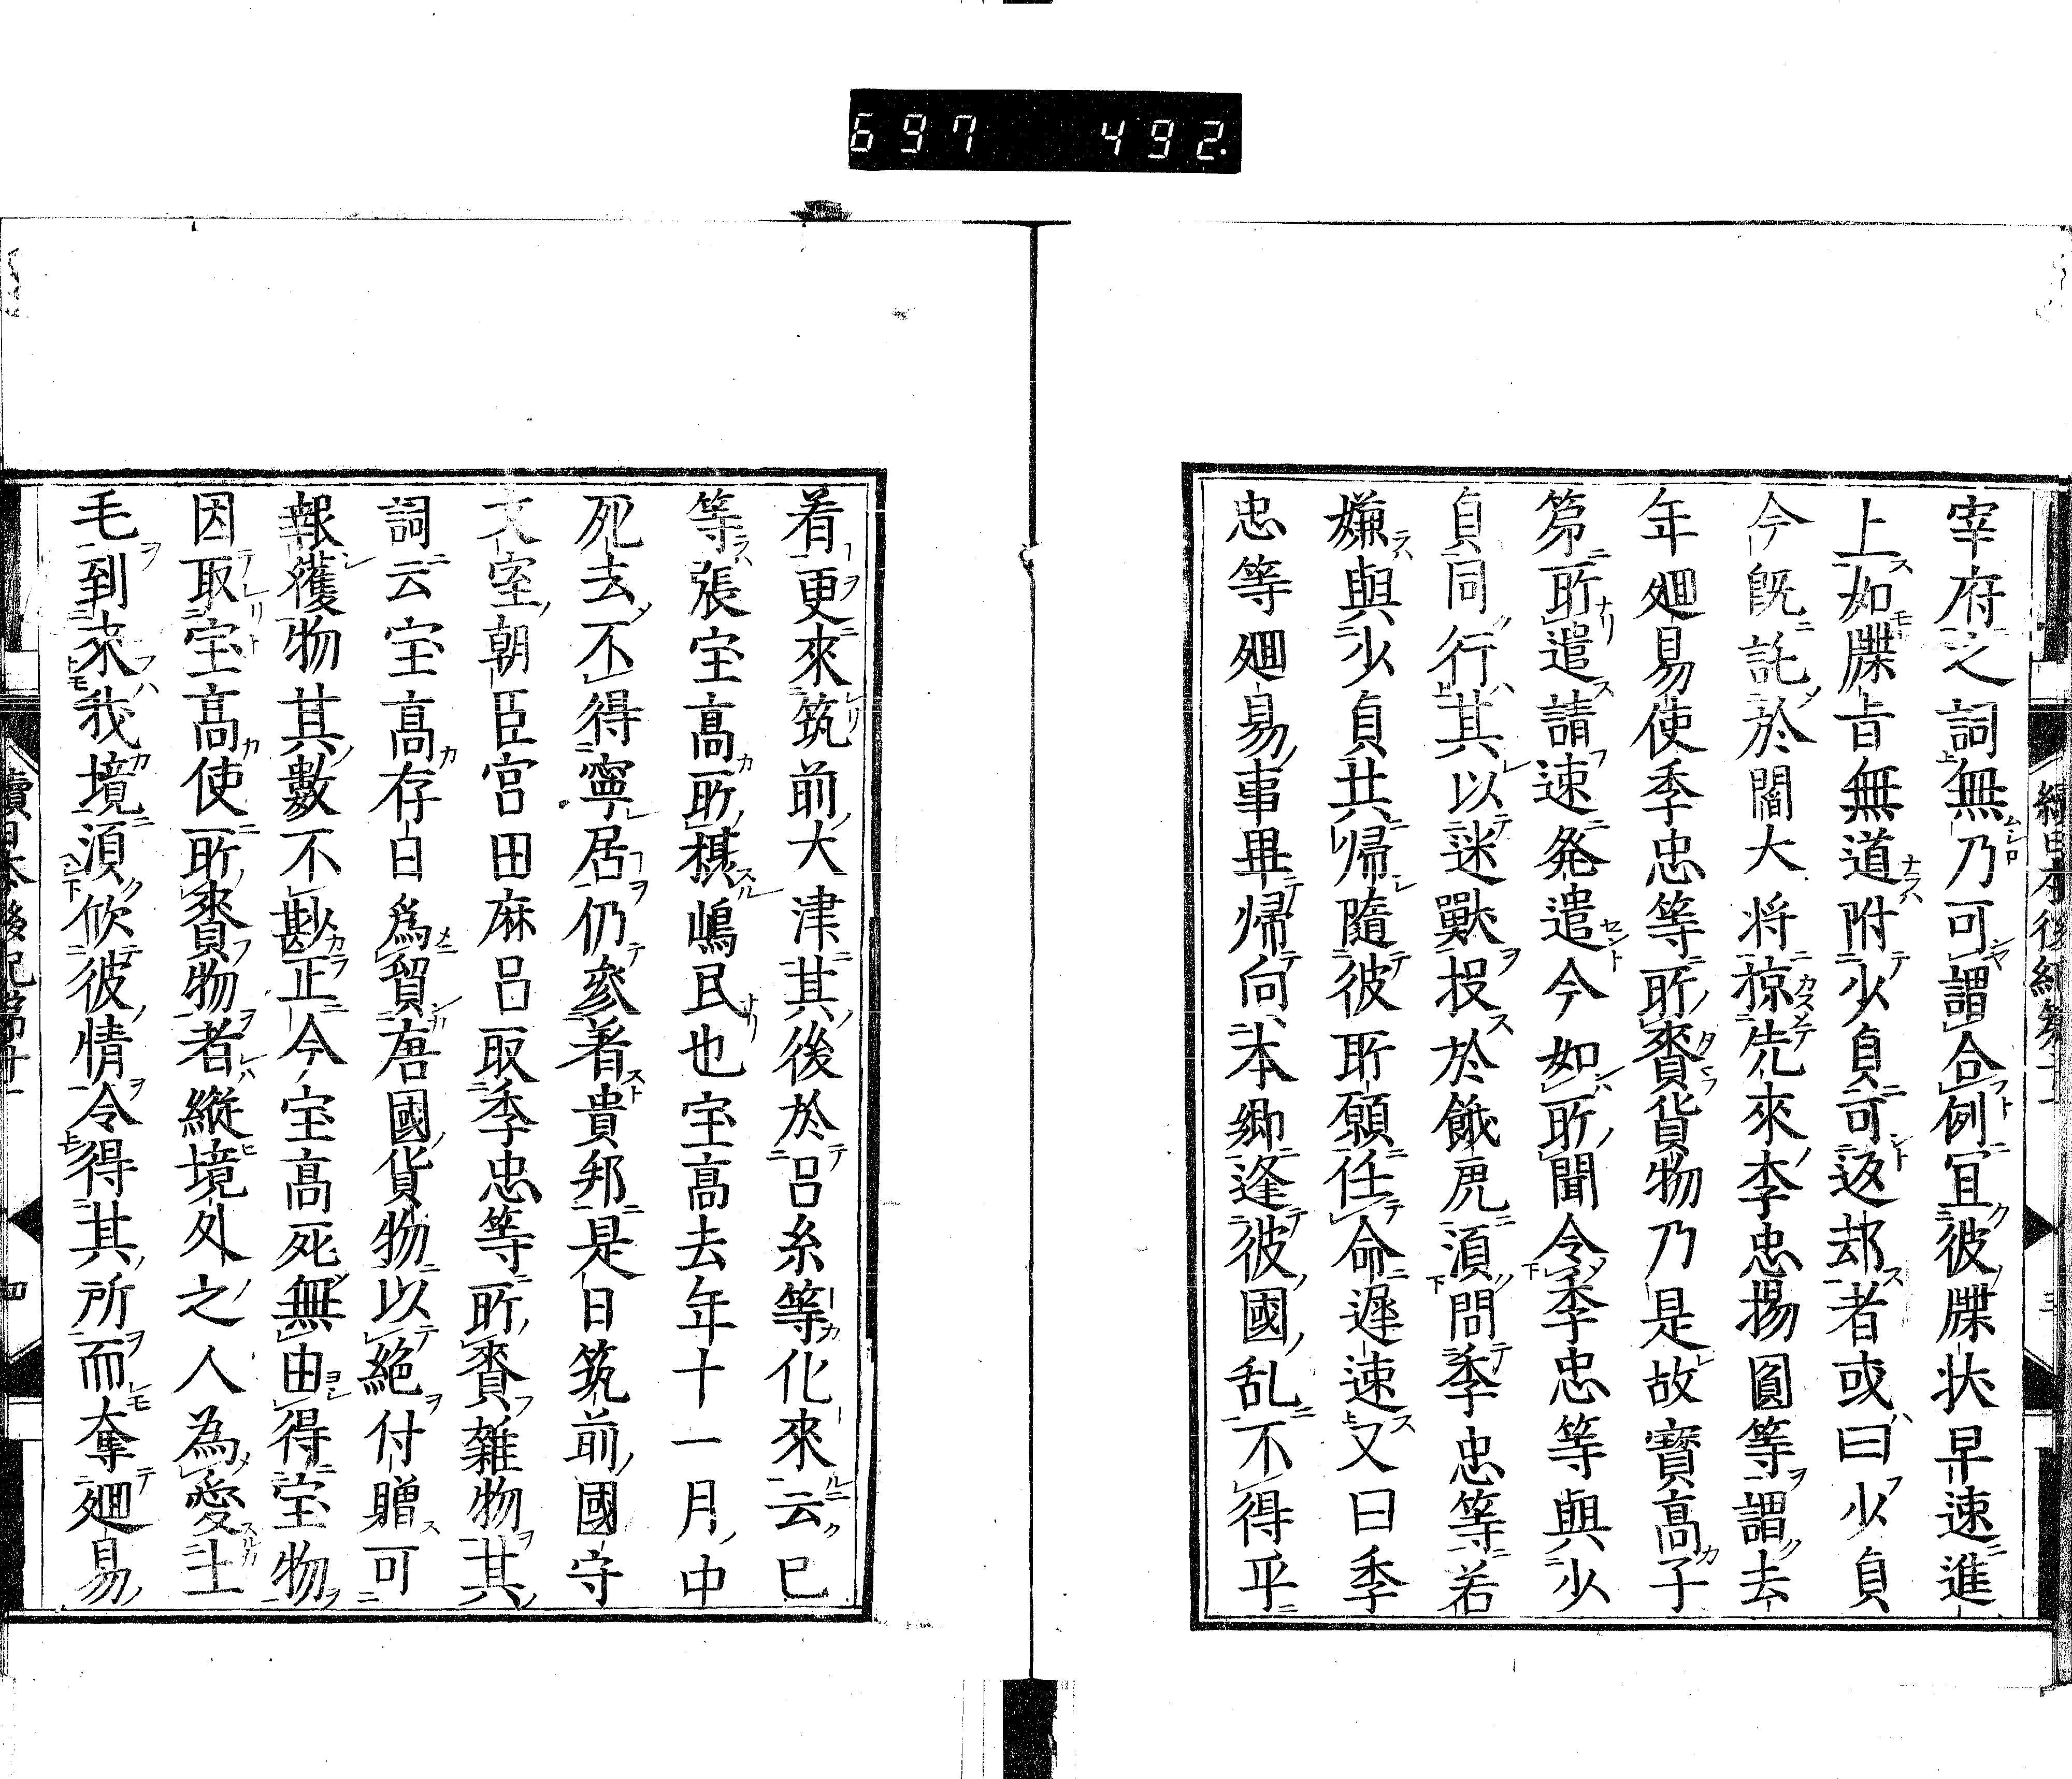 697 492.
續日本後紀第十一
三
宰府之詞無乃可謂合例宜彼牒状早速進
上如牒旨無道附少貞可返却者或曰少貞
今既託於閻大将掠先來李忠揚圓等謂去
年𢌞易使李忠等所賷貨物乃是故寳高子
第所遣請速発遣今如所聞令李忠等與少
貞同行其以迷獸投於餓虎湏問李忠等若
嫌與少貞共帰隨彼所願任命遲速又曰李
忠等𢌞易事畢帰向本郷逢彼國乱不得平
着更來筑前大津其後於呂系等化來云巳
等張宝高所攝嶋民也宝高去年十一月中
死去不得寧居仍參着貴邦是日筑前國守
文室朝臣宮田麻呂取李忠等所賷雜物其
詞云宝高存日爲貿唐國貨物以絶付贈可
報獲物其數不尠正今宝高死無由得宝物
因取宝高使所賷物者縱境外之人為愛土
毛到來我境湏欣彼情令得其所而奪𢌞易
續日本後紀第十一
四